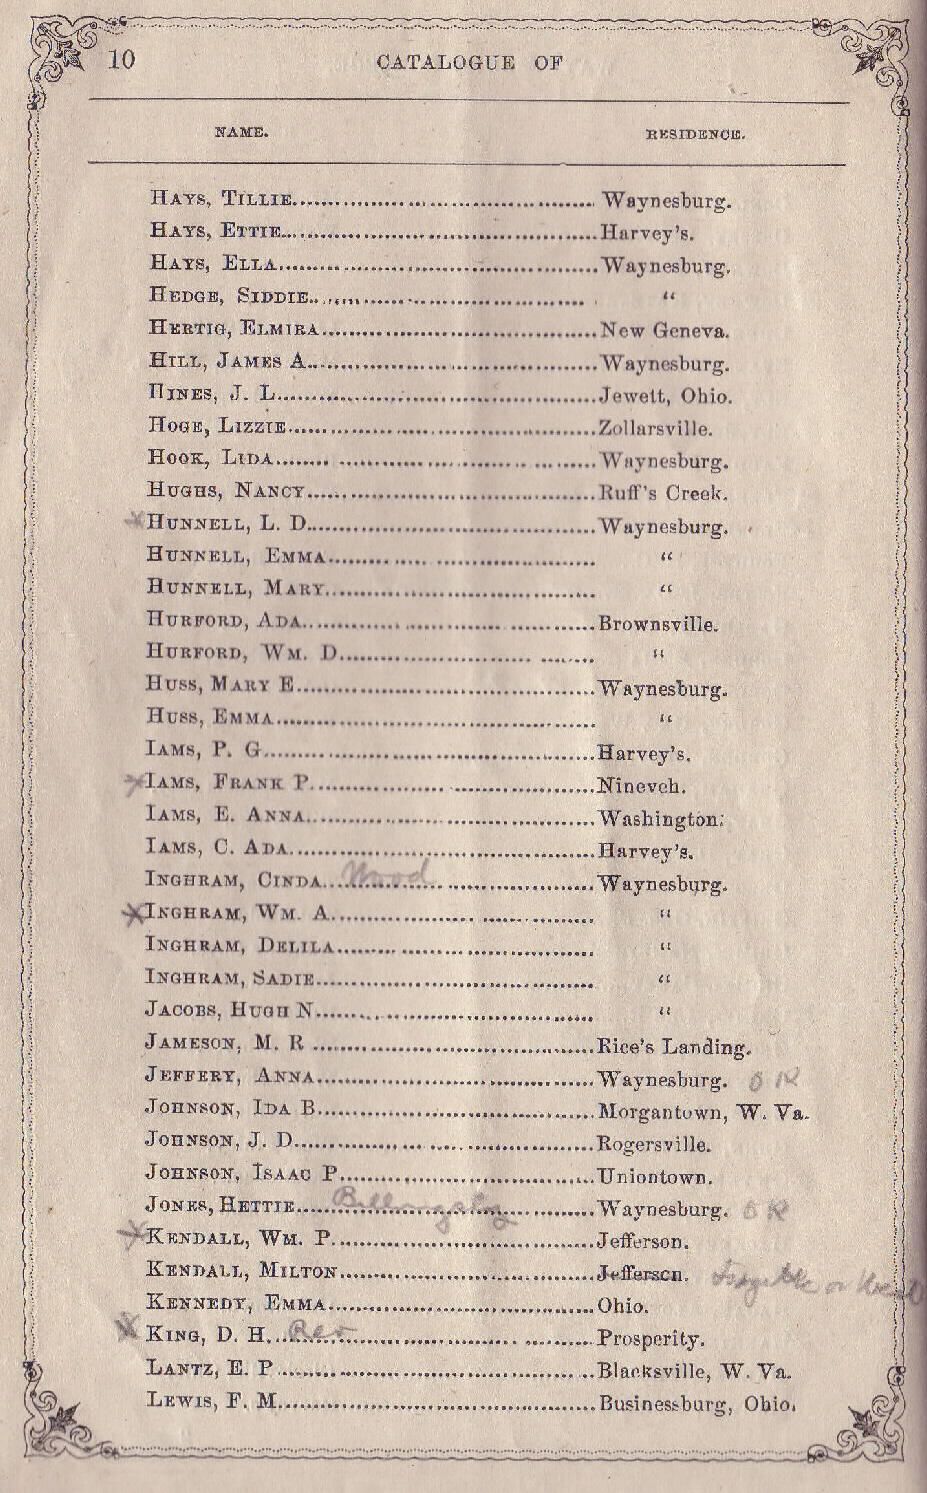 10 CATALOGUE OF
NAME. RESIDENCE.
HAYS, TILLIE.......... Waynesburg.
HAYS, ETTIE.......... Harvey's.
HAYS, ELLA.......... Waynesburg.
HEDGE, SIDDIE.......... “
HERTIG, ELMIRA.......... New Geneva.
HILL, JAMES A.......... Waynesburg.
HINES, J. L.......... Jewett, Ohio.
HOGE, LIZZIE.......... Zollarsville.
HOOK, LIDA.......... Waynesburg.
HUGHS, NANCY.......... Ruff's Creek.
HUNNELL, L. D.......... Waynesburg.
HUNNELL, EMMA.......... “
HUNNELL, MARY.......... “
HURFORD, ADA.......... Brownsville.
HURFORD, WM. D.......... “
HUSS, MARY E.......... Waynesburg.
HUSS, EMMA.......... “
IAMS, P. G.......... Harvey's.
IAMS, FRANK P.......... Nineveh.
IAMS, E. ANNA.......... Washington.
IAMS, C. ADA.......... Harvey's.
INGHRAM, CINDA.... Wood .......... Waynesburg.
INGHRAM, WM. A.......... “
INGHRAM, DELILA.......... “
INGHRAM, SADIE.......... “
JACOBS, HUGH N.......... “
JAMESON, M. R .......... Rice's Landing.
JEFFERY, ANNA.......... Waynesburg. O K
JOHNSON, IDA B.......... Morgantown, W. Va.
JOHNSON, J. D.......... Rogersville.
JOHNSON, ISAAC P.......... Uniontown.
JONES, HETTIE.... Billingsley .......... Waynesburg. O K
KENDALL, WM. P.......... Jefferson.
KENDALL, MILTON.......... Jefferson.
KENNEDY, EMMA.......... Ohio.
KING, D. H.... Rev .......... Prosperity.
LANTZ, E. P.......... Blacksville, W. Va.
LEWIS, F. M.......... Businessburg, Ohio.